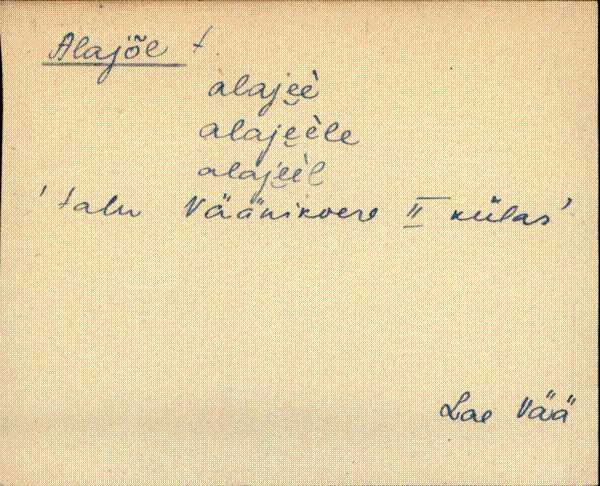 Alajõe t.
alajeè̬
alajeè̬le
alajeè̬l
'talu Väänikvere II külas'
Lae Vää